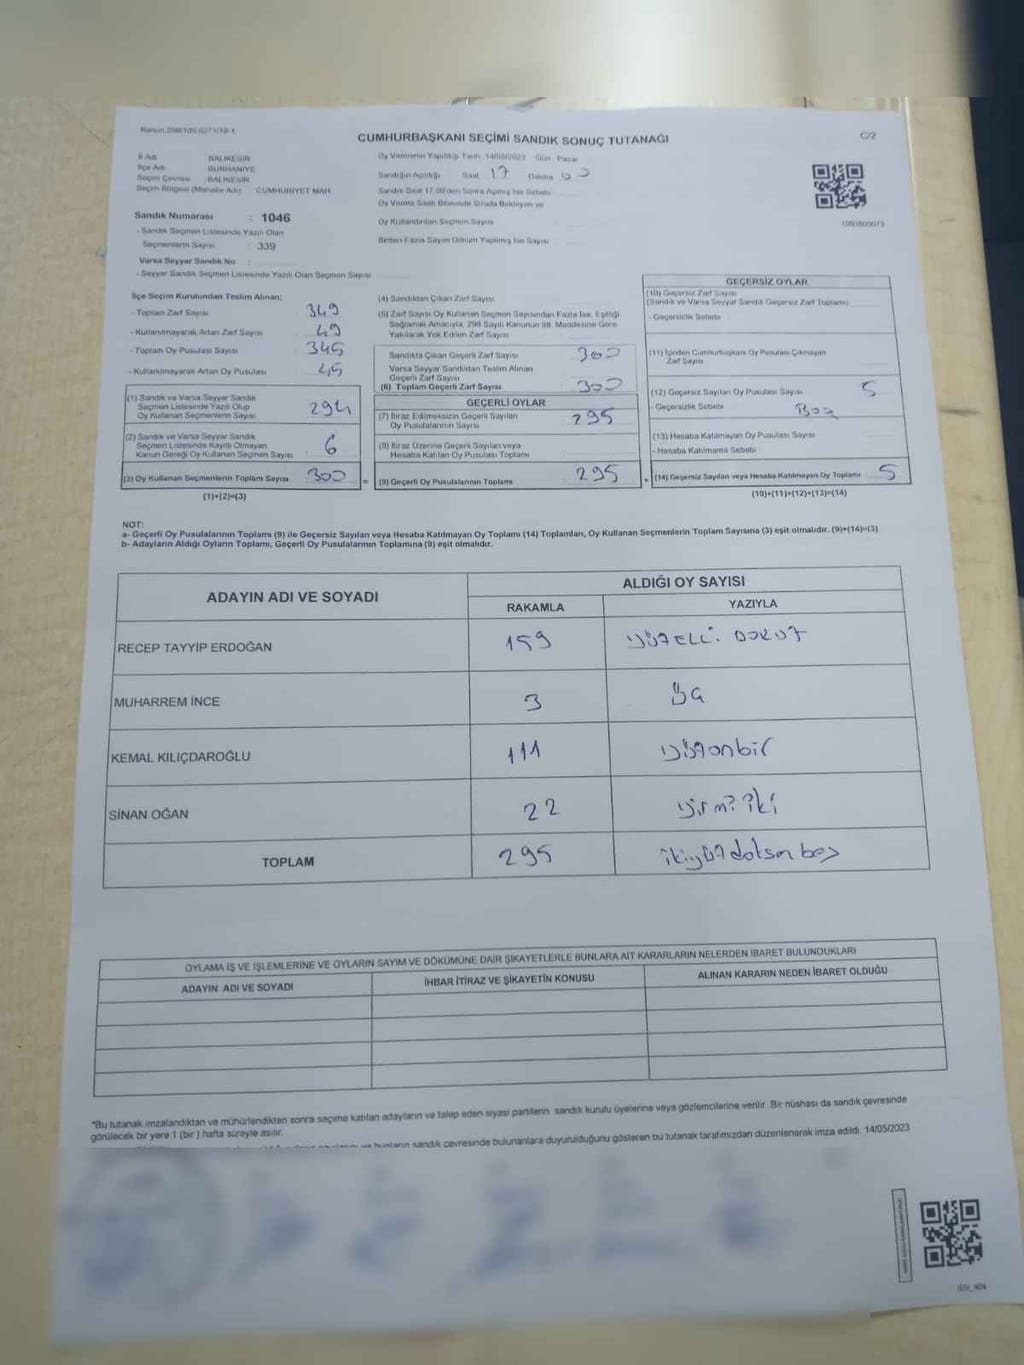 CUMHURBAŞKANI SEÇİMİ SANDIK SONUÇ TUTANAĞI
C/2
İl Adı BALIKESİR
İlçe Adı BURHANİYE
Seçim Çevresi BALIKESİR
Seçim Bölgesi (Mahalle Adı) CUMHURİYET MAH.
Oy Vermenin Yapıldığı Tarih 14/05/2023 Gün Pazar
Sandığın Açıldığı Saat 17 Dakika 00
Sandık Saat 17.00'den Sonra Açılmış İse Sebebi
Oy Verme Saati Bitiminde Sırada Bekleyen ve
Oy Kullandırılan Seçmen Sayısı
Birden Fazla Sayım Döküm Yapılmış İse Sayısı
Sandık Numarası : 1046
- Sandık Seçmen Listesinde Yazılı Olan
Seçmenlerin Sayısı : 339
Varsa Seyyar Sandık No
- Seyyar Sandık Seçmen Listesinde Yazılı Olan Seçmen Sayısı
İlçe Seçim Kurulundan Teslim Alınan;
- Toplam Zarf Sayısı : 349
- Kullanılmayarak Artan Zarf Sayısı : 49
- Toplam Oy Pusulası Sayısı : 345
- Kullanılmayarak Artan Oy Pusulası : 45
(1) Sandık ve Varsa Seyyar Sandık
Seçmen Listesinde Yazılı Olup
Oy Kullanan Seçmenlerin Sayısı 294
(2) Sandık ve Varsa Seyyar Sandık
Seçmen Listesinde Kayıtlı Olmayan
Kanun Gereği Oy Kullanan Seçmen Sayısı 6
(3) Oy Kullanan Seçmenlerin Toplam Sayısı 300
(1)+(2)=(3)
(4) Sandıktan Çıkan Zarf Sayısı
(5) Zarf Sayısı Oy Kullanan Seçmen Sayısından Fazla İse, Eşitliği
Sağlamak Amacıyla, 298 Sayılı Kanunun 98. Maddesine Göre
Yakılarak Yok Edilen Zarf Sayısı
Sandıkta Çıkan Geçerli Zarf Sayısı 300
Varsa Seyyar Sandıktan Teslim Alınan
Geçerli Zarf Sayısı
(6) Toplam Geçerli Zarf Sayısı 300
GEÇERLİ OYLAR
(7) İtiraz Edilmeksizin Geçerli Sayılan
Oy Pusulalarının Sayısı 295
(8) İtiraz Üzerine Geçerli Sayılan veya
Hesaba Katılan Oy Pusulası Toplamı
= (9) Geçerli Oy Pusulalarının Toplamı 295
GEÇERSİZ OYLAR
(10) Geçersiz Zarf Sayısı
(Sandık ve Varsa Seyyar Sandık Geçersiz Zarf Toplamı)
- Geçersizlik Sebebi
(11) İçinden Cumhurbaşkanı Oy Pusulası Çıkmayan
Zarf Sayısı
(12) Geçersiz Sayılan Oy Pusulası Sayısı 5
- Geçersizlik Sebebi Boş
(13) Hesaba Katılmayan Oy Pusulası Sayısı
- Hesaba Katılmama Sebebi
+ (14) Geçersiz Sayılan veya Hesaba Katılmayan Oy Toplamı 5
(10)+(11)+(12)+(13)=(14)
NOT:
a- Geçerli Oy Pusulalarının Toplamı (9) ile Geçersiz Sayılan veya Hesaba Katılmayan Oy Toplamı (14) Toplamları, Oy Kullanan Seçmenlerin Toplam Sayısına (3) eşit olmalıdır. (9)+(14)=(3)
b- Adayların Aldığı Oyların Toplamı, Geçerli Oy Pusulalarının Toplamına (9) eşit olmalıdır.
ADAYIN ADI VE SOYADI
ALDIĞI OY SAYISI
RAKAMLA YAZIYLA
RECEP TAYYİP ERDOĞAN 159 YÜZELLİ DOKUZ
MUHARREM İNCE 3 Üç
KEMAL KILIÇDAROĞLU 111 yüzonbir
SİNAN OĞAN 22 yirmi iki
TOPLAM 295 ikiyüzdoksanbeş
OYLAMA İŞ VE İŞLEMLERİNE VE OYLARIN SAYIM VE DÖKÜMÜNE DAİR ŞİKAYETLERLE BUNLARA AİT KARARLARIN NELERDEN İBARET BULUNDUKLARI
ADAYIN ADI VE SOYADI İHBAR İTİRAZ VE ŞİKAYETİN KONUSU ALINAN KARARIN NEDEN İBARET OLDUĞU
*Bu tutanak imzalandıktan ve mühürlendikten sonra seçime katılan adayların ve talep eden siyasi partilerin sandık kurulu üyelerine veya gözlemcilerine verilir. Bir nüshası da sandık çevresinde
görülecek bir yere 1 (bir) hafta süreyle asılır.
sandık çevresinde bulunanlara duyurulduğunu gösteren bu tutanak tarafımızdan düzenlenerek imza edildi. 14/05/2023